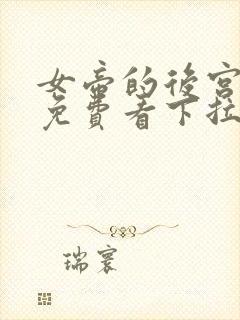 女帝的後宮
免費看下拉
瑞寰